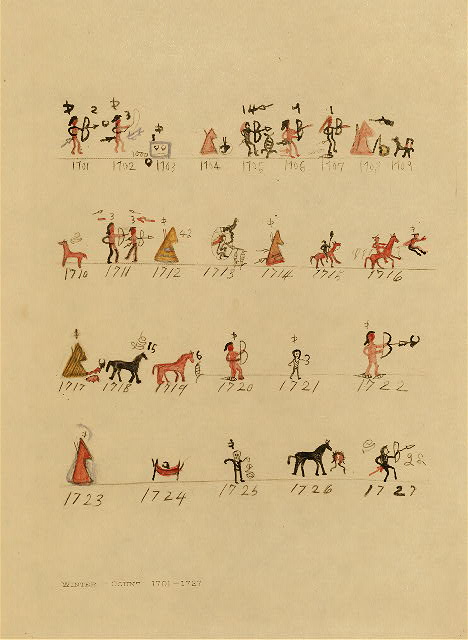 2 3 14 9 1
1701 1702 1703 1704 1705 1706 1707 1708 1709
3 3 42
1710 1711 1712 1713 1714 1715 1716
15 6 3
1717 1718 1719 1720 1721 1722
22
1723 1724 1725 1726 1727
WINTER COUNT 1701-1727